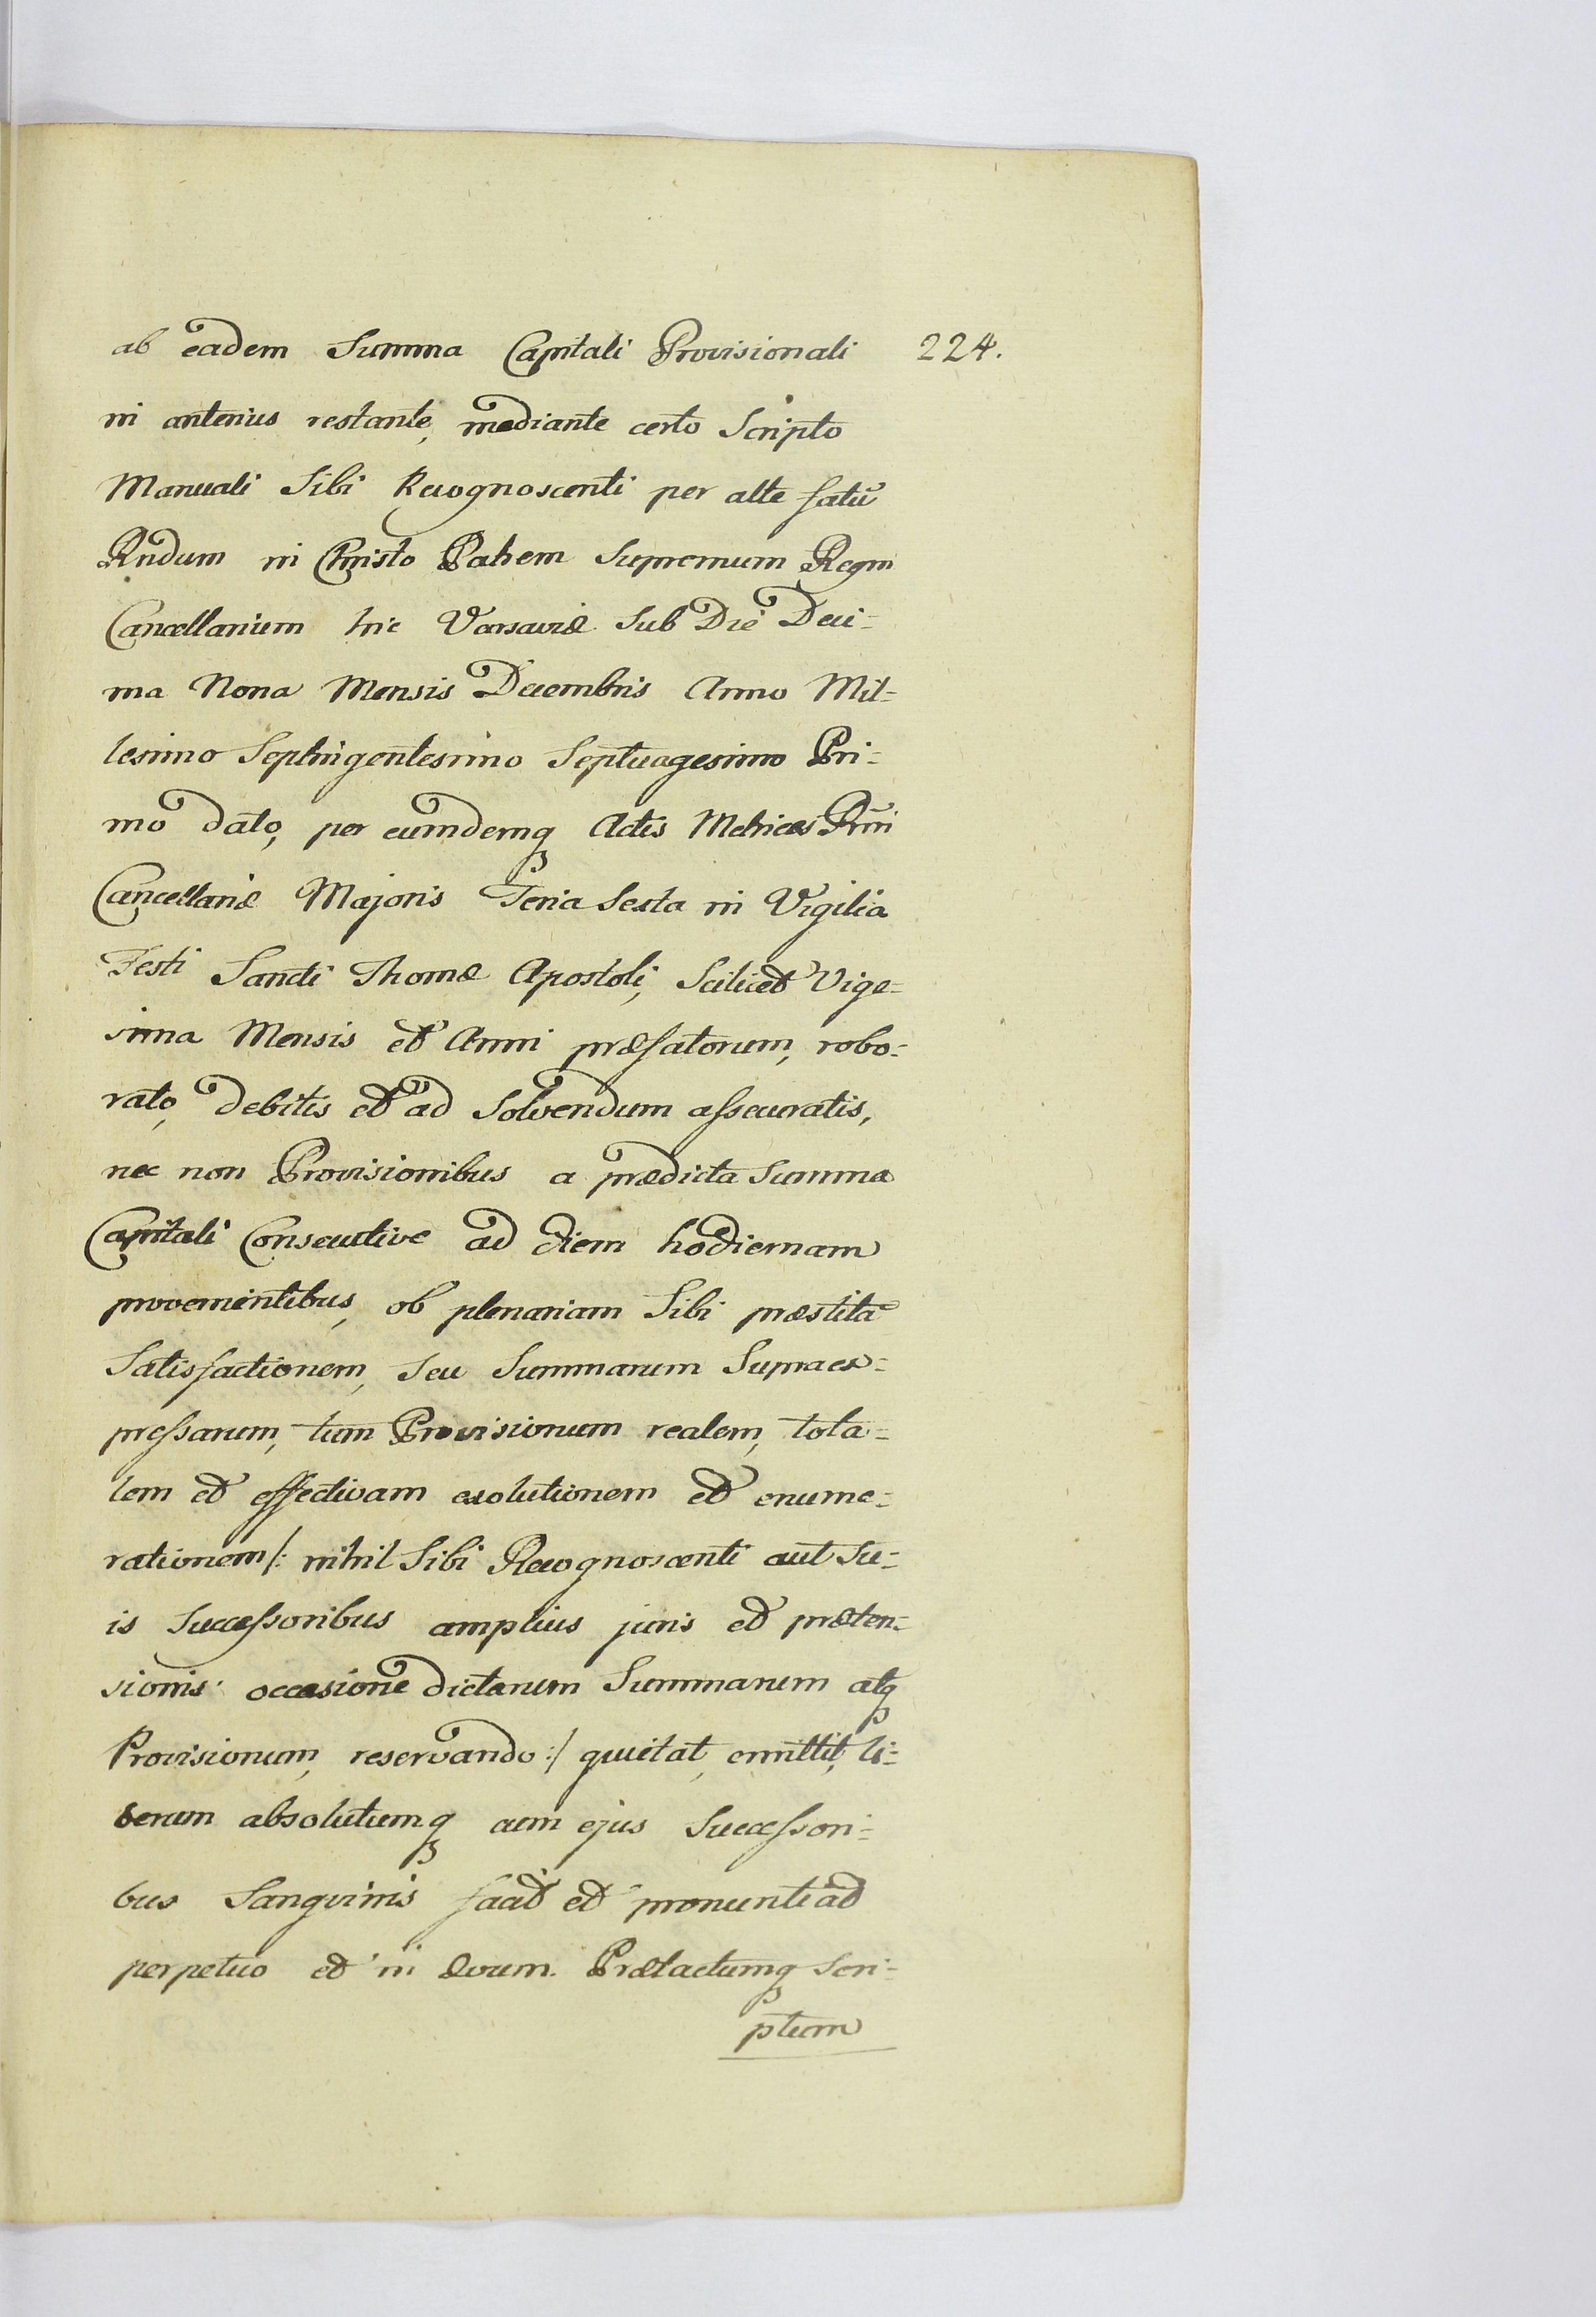 ab eadem Summa Capitali Provisionali 224.
in anterius restante, mediante certo Scripto
Manuali Sibi Recognoscenti per alte fatū
Rndum in Christo Patrem Supremum Regni
Cancellarium hic Varsaviæ Sub Die Deci-
ma Nona Mensis Decembris Anno Mil-
lesimo Septingentesimo Septuagesimo Pri-
mo dato, per eumdemq Actis Metrices
Cancellariæ Majoris Feria Sexta in Vigilia
Festi Sancti Thomæ Apostoli, Scilicet Vige-
sima Mensis et Anni præfatorum, robo-
rato, debitis et ad Solvendum assecuratis,
nec non Provisionibus a prædicta Summa
Capitali Consecutive ad diem hodiernam
provenientibus, ob plenariam Sibi præstitā
Satisfactionem, Seu Summarum Supraex-
pressarum, tum Provisionum realem, tota-
lem et effectivam exolutionem et enume-
rationem /: nihil Sibi Recognoscenti aut Su-
is Successoribus amplius juris et præten-
sionis occasione dictarum Summarum atq
Provisionum, reservando :/ quietat, emittit, li-
berum absolutumq cum ejus Successori-
bus Sangvinis facit et pronuntiat
perpetuo et in ævum. Prætactumq Scri-
ptum